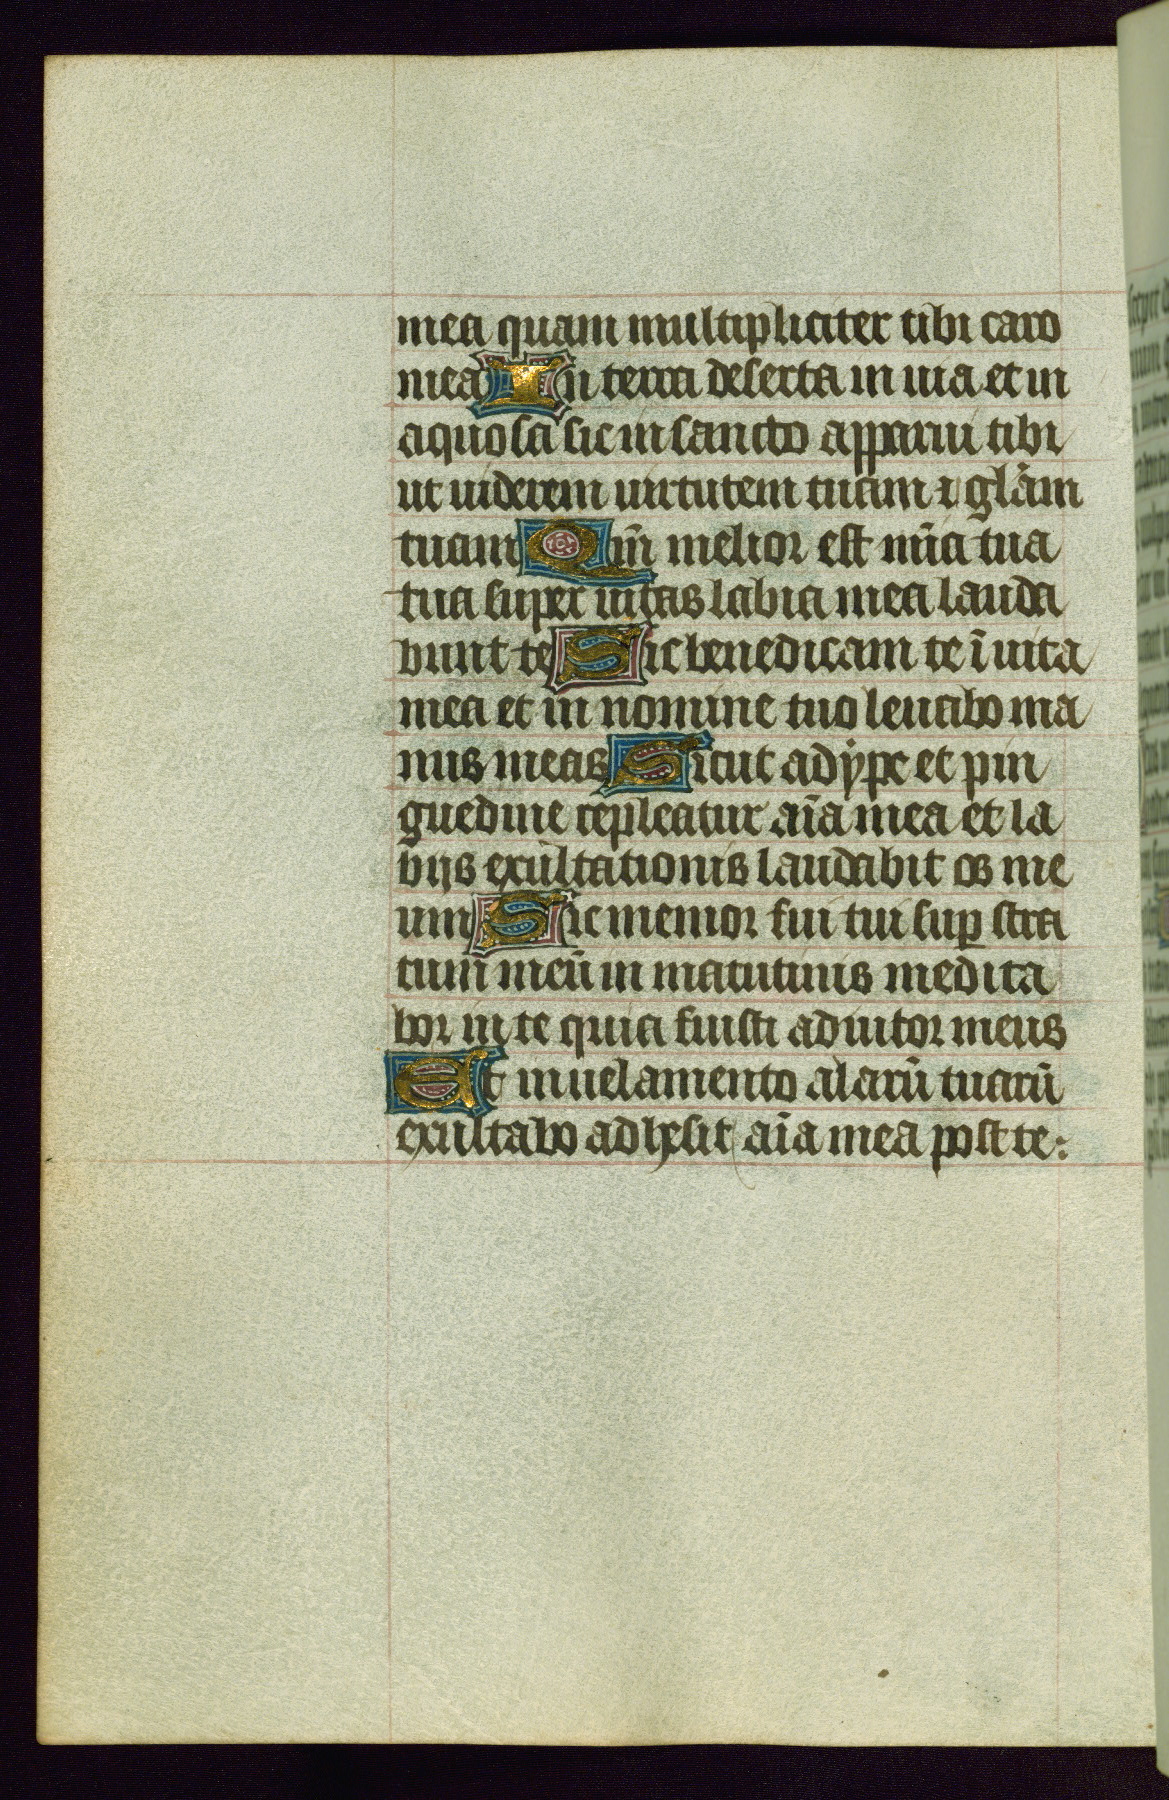 mea quam multipliciter tibi caro
mea In terra deserta in uia et in
aquosa sic in sancto apparui tibi
ut uiderem uirtutem tuam ⁊ glām
tuam Qm̄ melior est mīa tua
tua super uitas labia mea lauda
bunt te Sic benedicam te ī uita
mea et in nomine tuo leuabo ma
nus meas Sicut adẏpe et pin
guedine repleatur aīa mea et la
bijs exultationis laudabit os me
um Sic memor fui tui suꝑ stra
tum meū in matutinis medita
bor in te quia fuisti adiutor meus
Et in uelamento alarū tuarū
exultabo adhesit aīa mea post te: